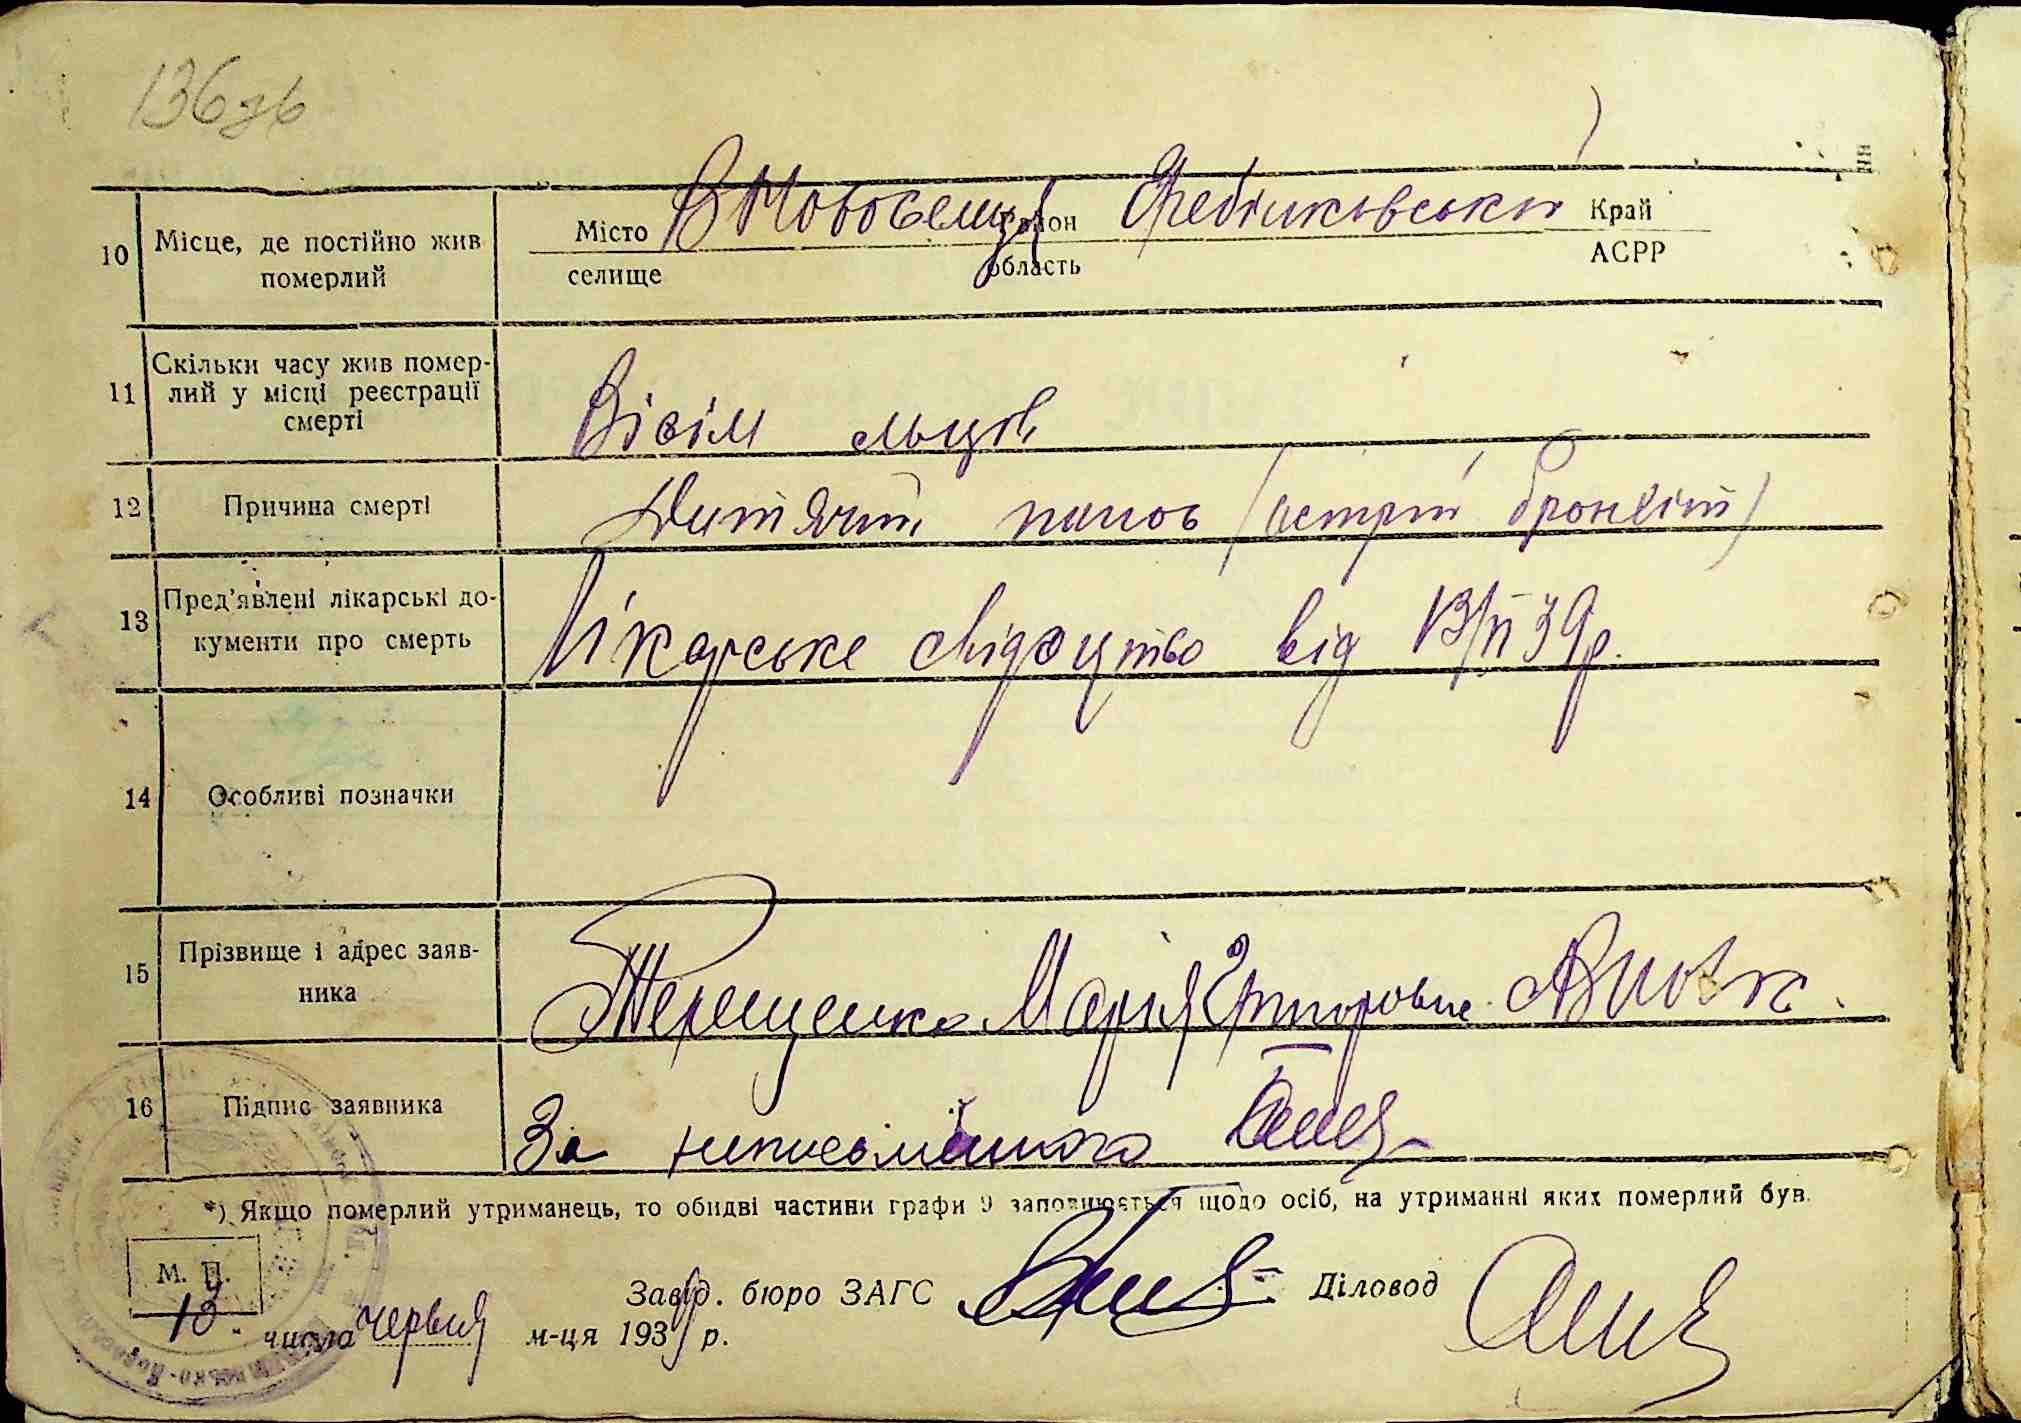 136зв
10 Місце, де постійно жив померлий
Місто
селище
В Новоселиця
район
область
Край
АСРР
11 Скільки часу жив помер-
лий у місці реєстрації
смерті
Вісім
12 Причина смерті
Дитячий понос (острий бронхіт)
13 Пред'явлені лікарські до-
кументи про смерть
Лікарське свідоцтво від 13/VI 39р.
14 Особливі позначки
15 Прізвище і адрес заяв-
ника
Терещенко Марія Григоровна
16 Підпис заявника
За неписьменного
*) Якщо померлий утриманець, то обидві частини графи 9 заповнюється щодо осіб, на утриманні яких померлий був.
М. П.
Завід. бюро ЗАГС
Діловод
числа червня м-ця 1939 р.